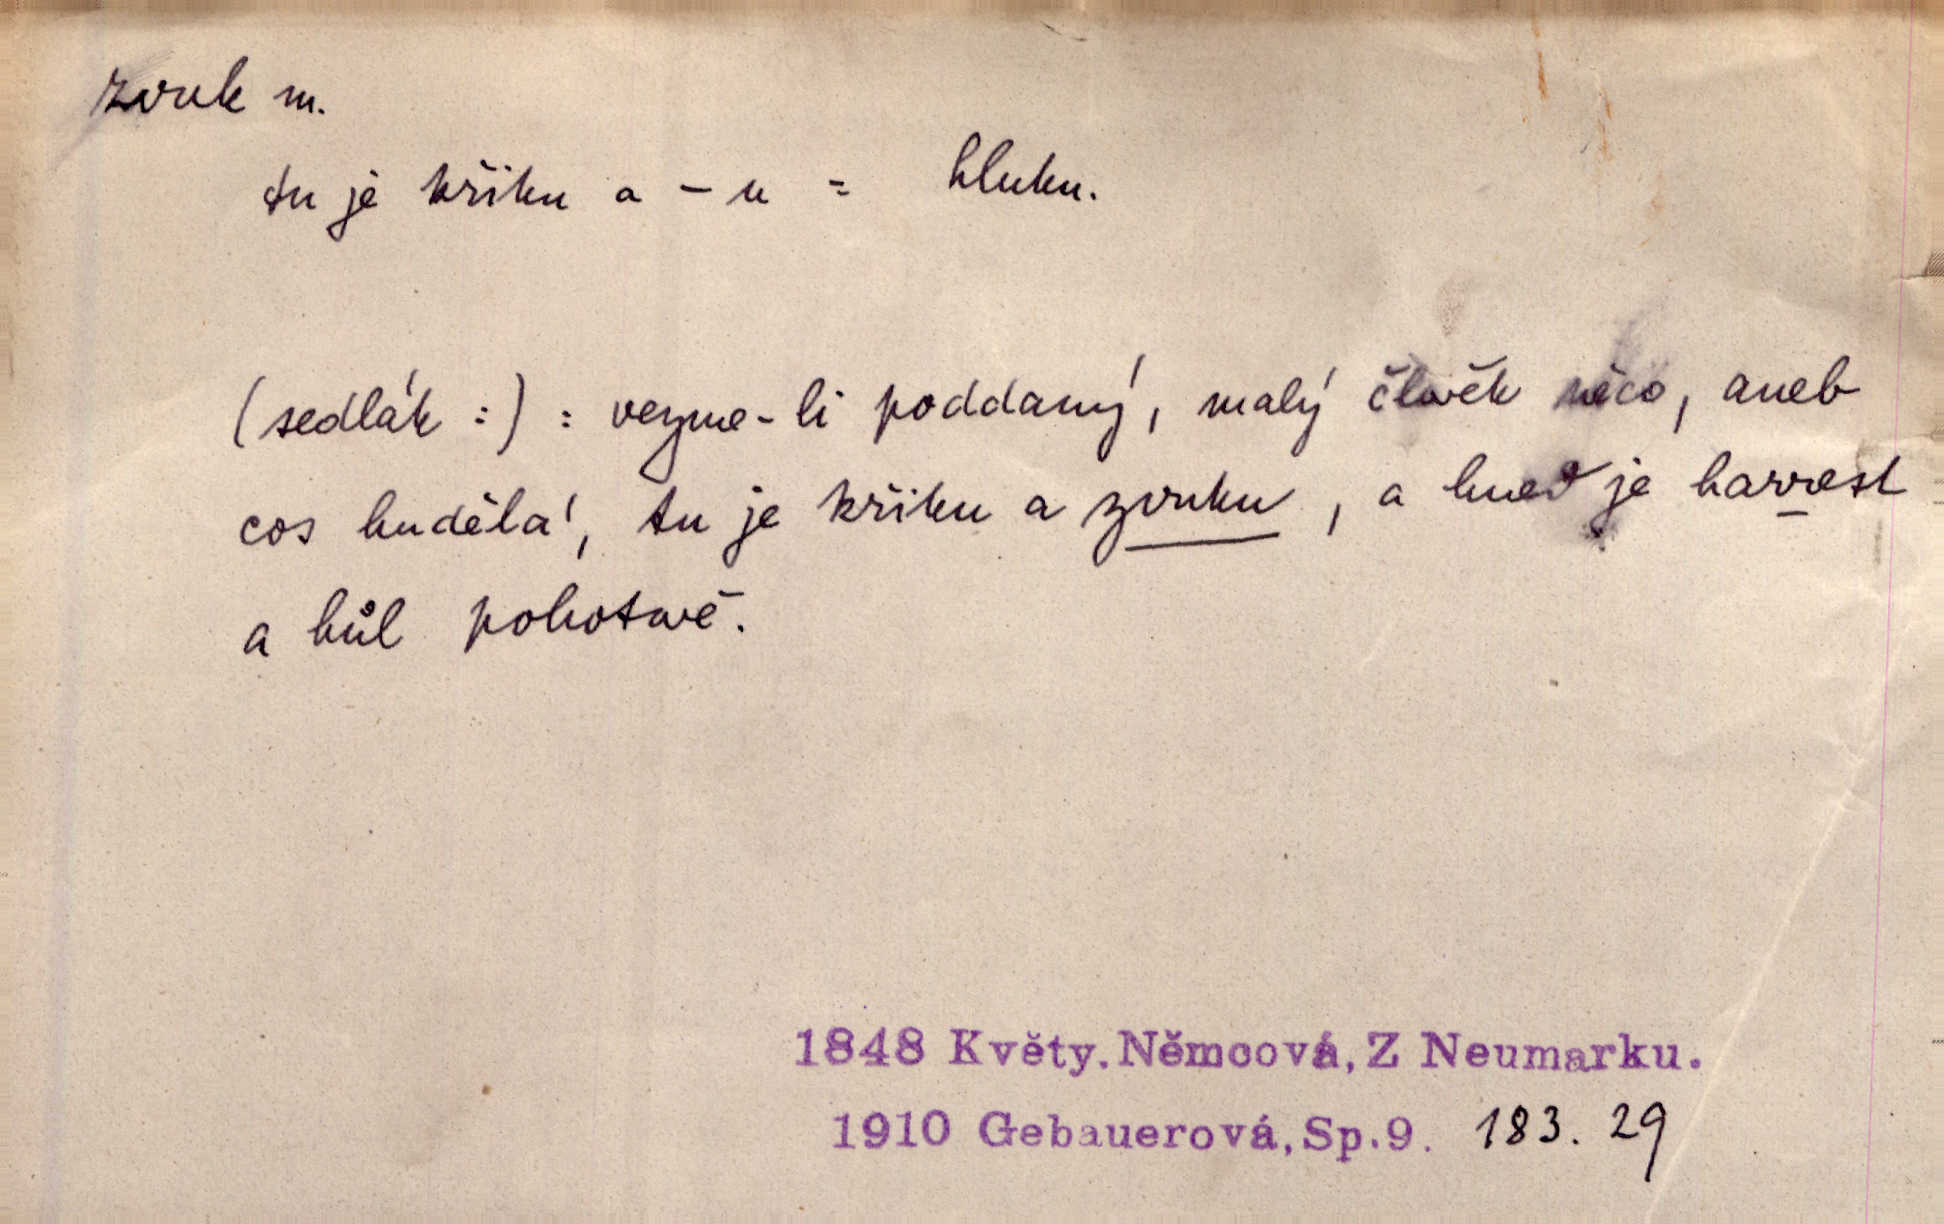 zvuk m.
tu je křiku a – u = hluku.
(sedlák :) : vezme-li poddaný, malý člověk něco, aneb
cos hudělá, tu je křiku a zvuku, a hned je harrest
a hůl pohotově.
1848 Květy. Němcová, Z Neumarku.
1910 Gebauerová, Sp.9. 183. 29